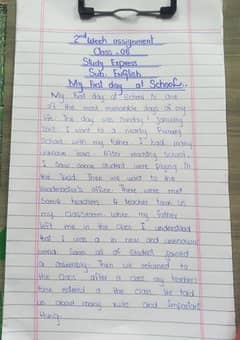 2nd Week assignment
Class - 06
Study Express
Sub: English
My first day at School.
My first day at School is one
of the most memorable days of my
life. The day was Sunday 1 January
I went to a nearby Primary
School with my father. I had many
various fears. After reaching School,
I saw some student were playing in
the field. Then we went to the
Headmaster's office. There we met
Some teachers. A teacher took us
my classroom. when my father
left me in the class I understood
that I was a in new and unknown
world. Soon all of student joined
a assembly. Then we returned to
the class after a class my teachers
time entered a the class. he told
us about many rules and important
thing.